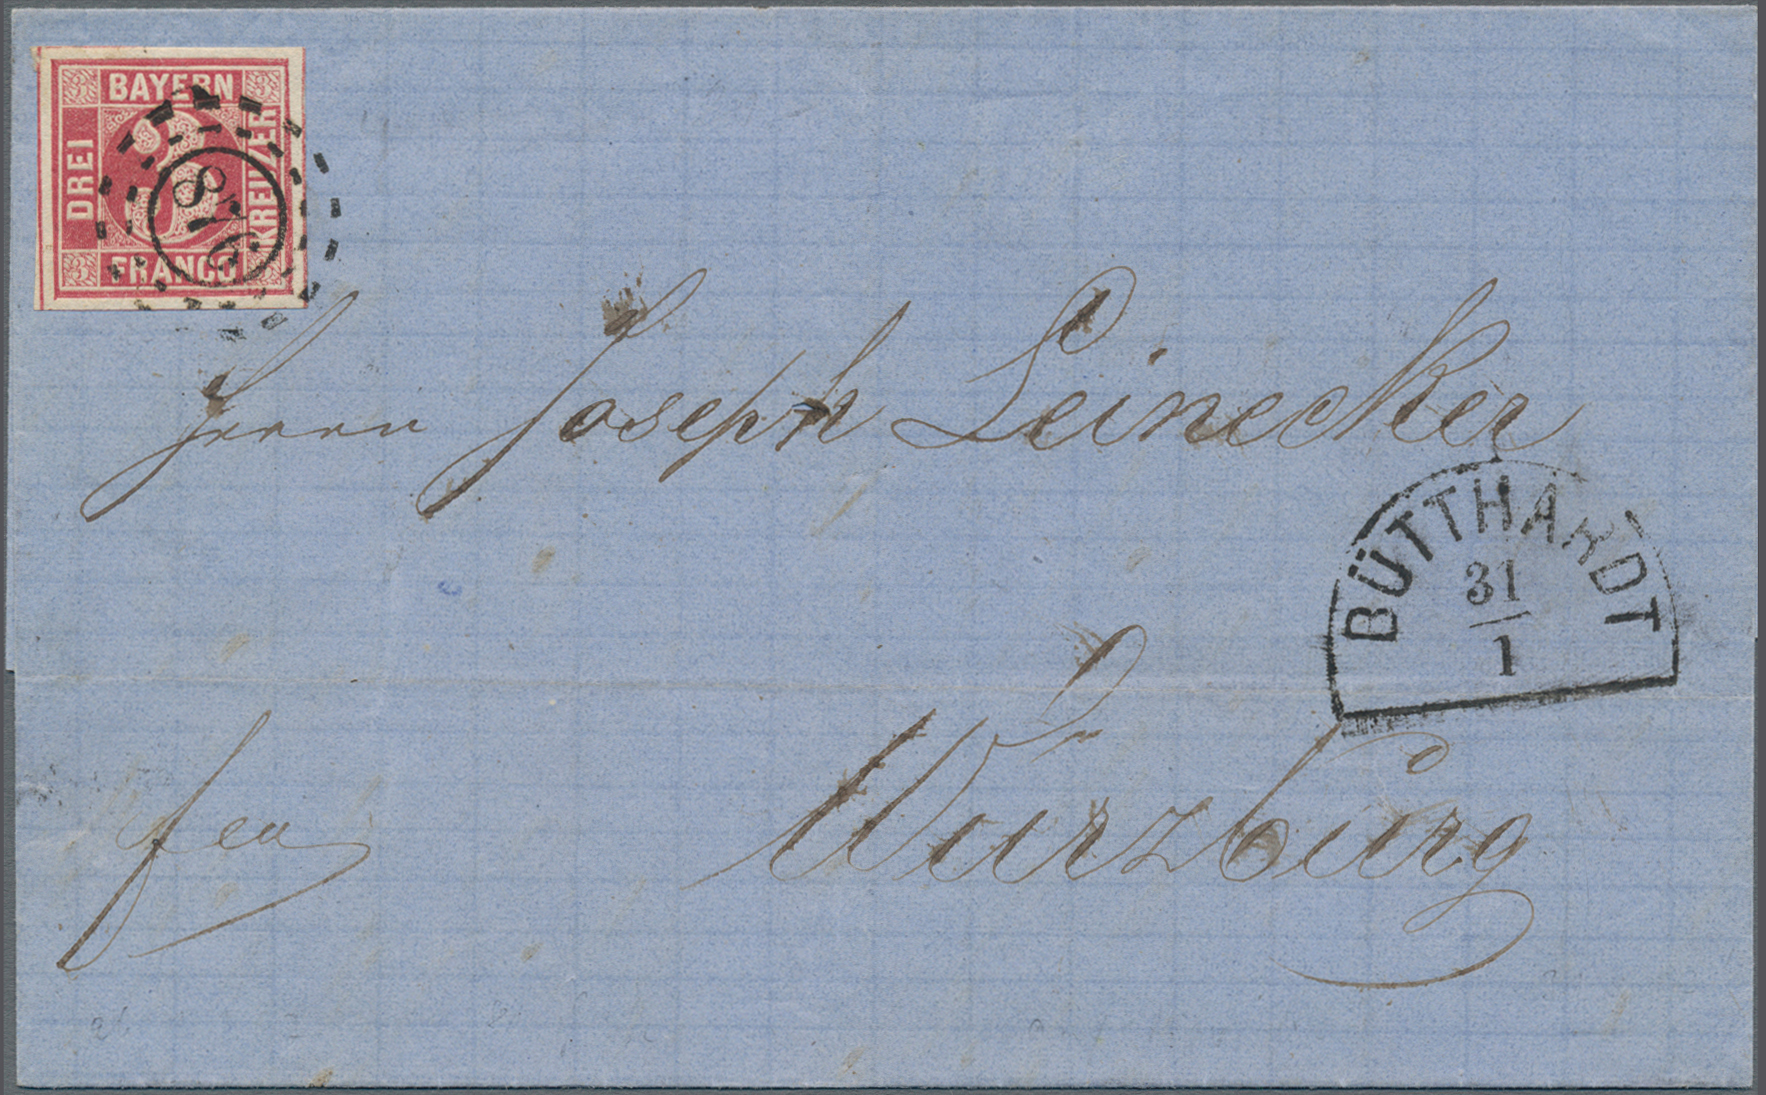 BAYERN
DREI
KREUZER
FRANCO
3 3 3
Herrn Joseph Leinecker
BÜTTHARDT
31
1
Würzburg